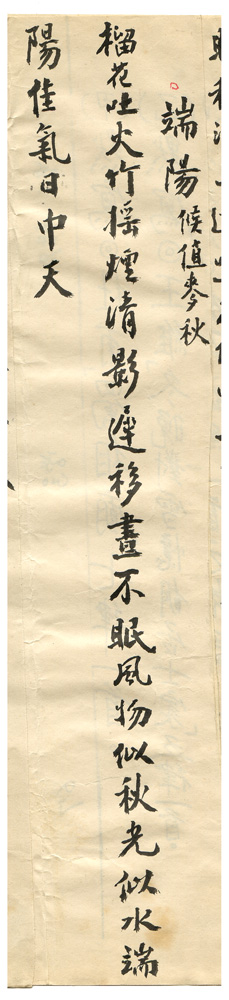 端陽 候值麥秋
榴花吐火竹搖煙清影遲移晝不眠風物似秋光似水端
陽佳氣日中天